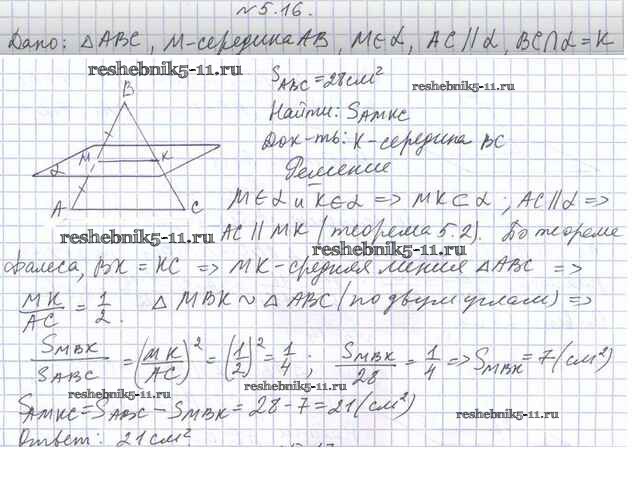 №5.16.
Дано: △ABC, M-середина AB, M∈α, AC∥α, BC∩α=K
reshebnik5-11.ru
S_ABC=28см²
reshebnik5-11.ru
Найти: S_AMKC
Док-ть: K-середина BC
Решение
B
M K
α
A C
M∈α и K∈α => MK⊂α; AC∥α =>
AC∥MK (теорема 5.2). По теореме
reshebnik5-11.ru
reshebnik5-11.ru
Фалеса, BK=KC => MK-средняя линия △ABC =>
MK/AC = 1/2. △MBK ~ △ABC (по двум углам) =>
S_MBK/S_ABC = (MK/AC)² = (1/2)² = 1/4; S_MBK/28 = 1/4 => S_MBK=7(см²)
reshebnik5-11.ru
S_AMKC=S_ABC-S_MBK=28-7=21(см²)
reshebnik5-11.ru
Ответ: 21см²